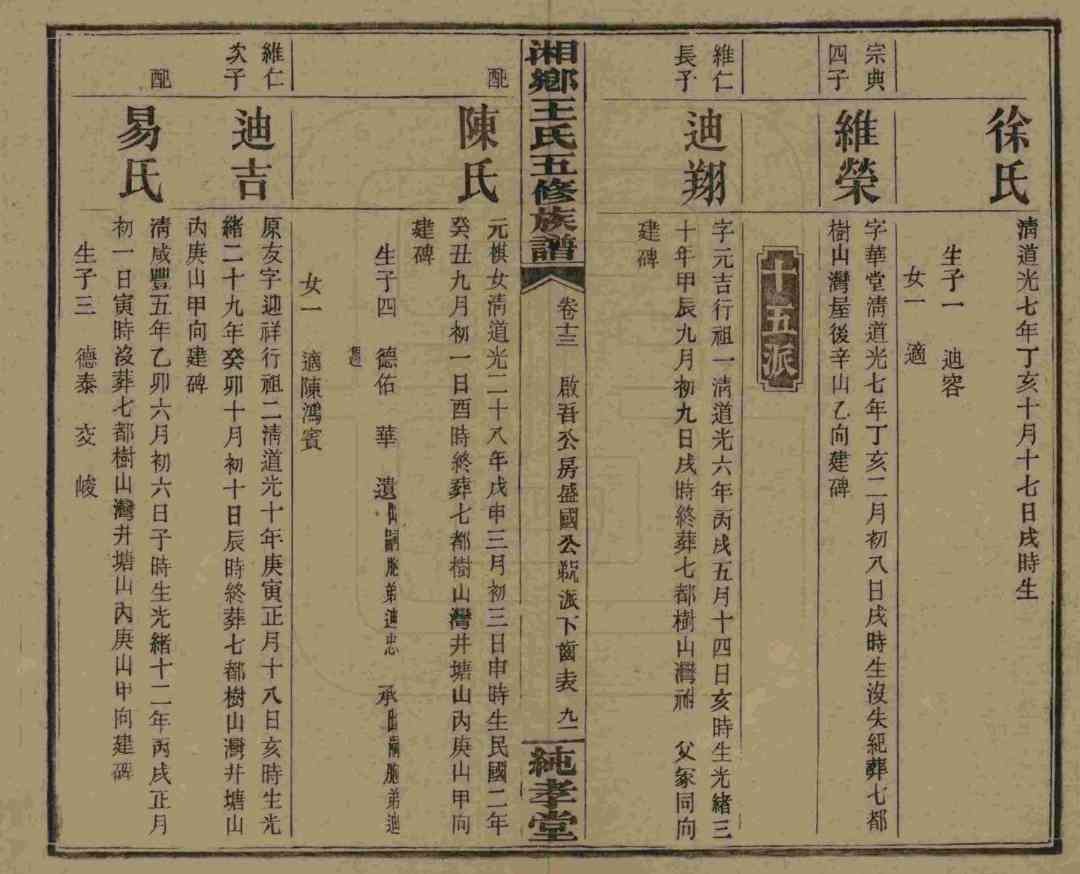 徐氏
清道光七年丁亥十月十七日戌時生
生子一 迪容
女一 適
宗典
四子
維榮
字華堂清道光七年丁亥二月初八日戌時生沒失紀葬七都
樹山灣屋後辛山乙向建碑
十五派
維仁
長子
迪翔
字元吉行祖一清道光六年丙戌五月十四日亥時生光緒三
十年甲辰九月初九日戌時終葬七都樹山灣祔 父冢同向
建碑
湘鄉王氏五修族譜
卷十三 啟吾公房盛國公 派下齒表 九一
純孝堂
配
陳氏
元棋女清道光二十八年戊申三月初三日申時生民國二年
癸丑九月初一日酉時終葬七都樹山灣井塘山丙庚山甲向
建碑
生子四 德佑 華 遺出嗣胞弟迪忠 承出嗣胞弟迪
迥
女一 適陳鴻賓
維仁
次子
迪吉
原友字迎祥行祖二清道光十年庚寅正月十八日亥時生光
緒二十九年癸卯十月初十日辰時終葬七都樹山灣井塘山
丙庚山甲向建碑
配
易氏
清咸豐五年乙卯六月初六日子時生光緒十二年丙戌正月
初一日寅時沒葬七都樹山灣井塘山內庚山甲向建碑
生子三 德泰 交 峻